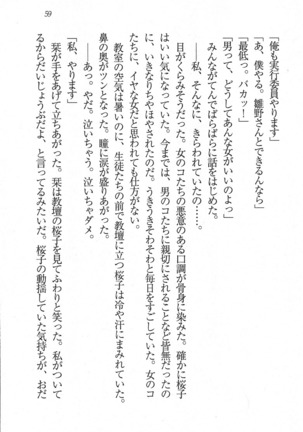 59
「俺も実行委員やります」
「あ、僕やる。雛野さんとできるんなら」
「最低っ。バカッ！」
「男って、どうしてあんな女がいいのよっ」
みんながてんでばらばらに話をはじめた。
――私、そんなに、きらわれていたの……。
目がくらみそうだった。女のコたちの悪意のある口調が骨身に染みた。確かに桜子
はいい気になっていた。今までは、男のコたちに親切にされることなど皆無だったの
に、いきなりちやほやされたのだ。うきうきそわそわと毎日をすごしていた。女のコ
たちに、イヤな女だと思われても仕方がない。
教室の空気は暑いのに、生徒たちの前で教壇に立つ桜子は冷や汗にまみれていた。
鼻の奥がツンとなった。瞳に涙が盛りあがった。
――あっ。やだ。泣いちゃう。泣いちゃダメ。
「私、やります」
栞が手をあげて立ちあがった。栞は教壇の桜子を見てふわりと笑った。私がついて
るからだいじょうぶだよ、と言ってるみたいだ。桜子の動揺していた気持ちが、おだ